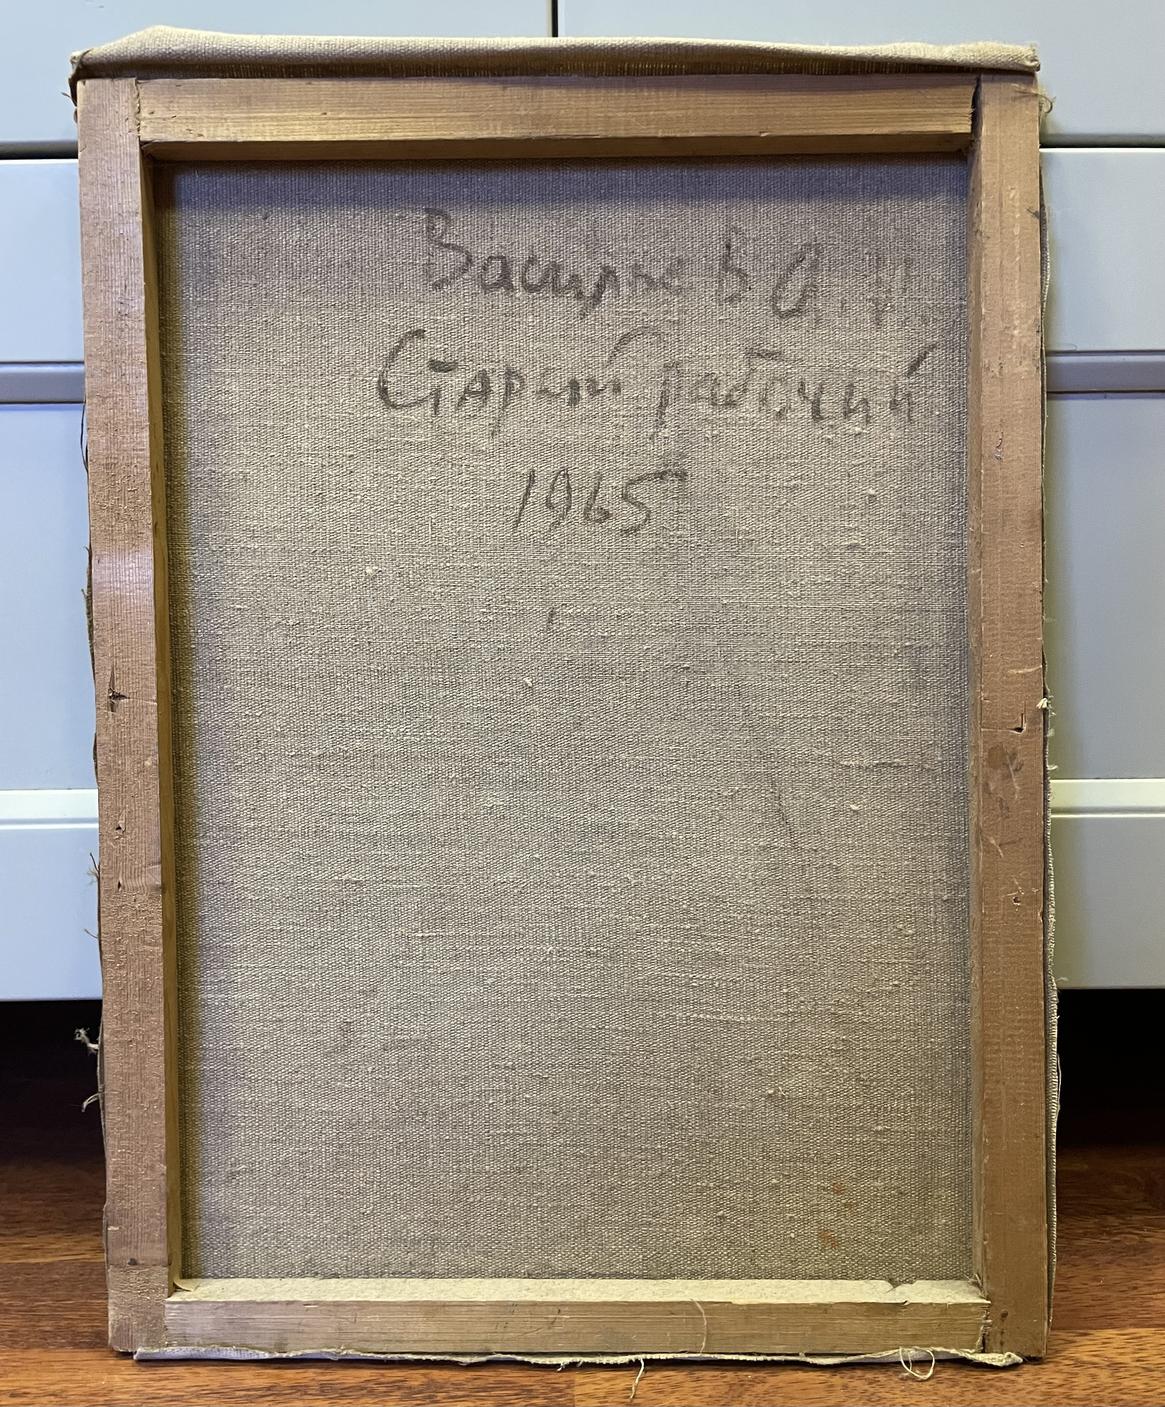 Васильев О. И.
Старый рабочий
1965